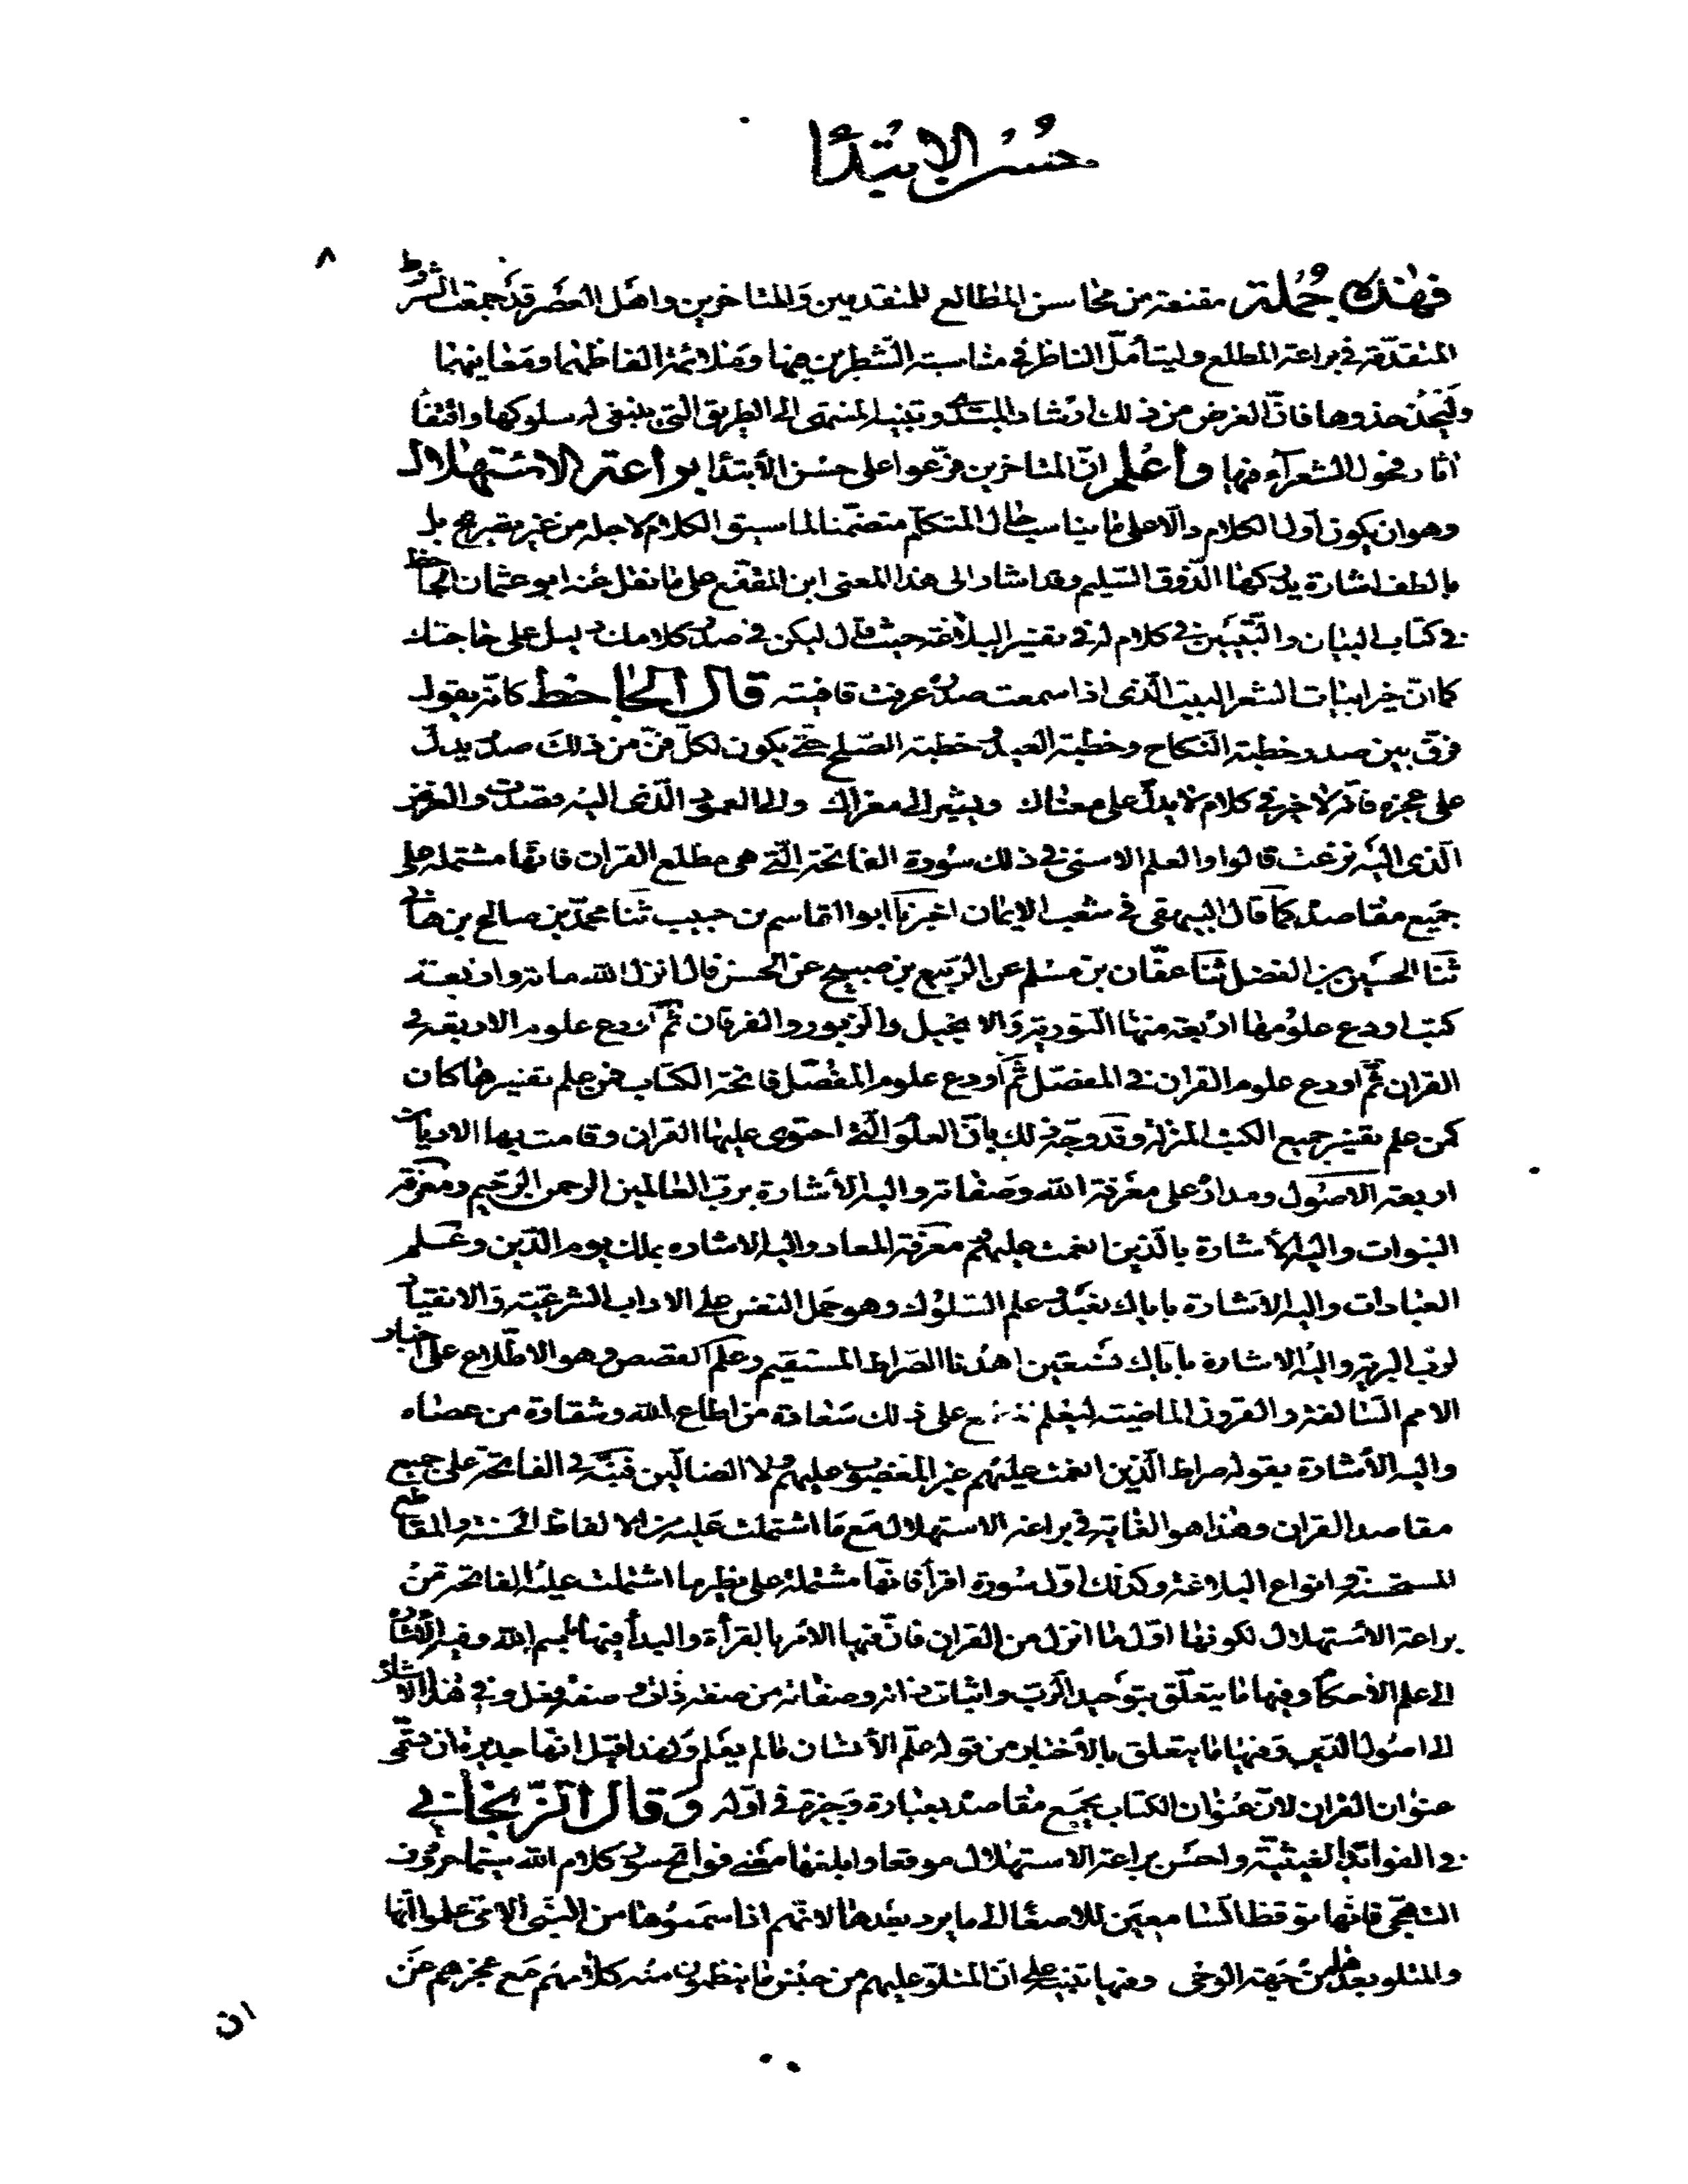 حسن الابتدا
٨
فهذه جملة مقنعة من محاسن المطالع للمتقدمين والمتاخرين واهل العصر قد جمعت الشروط
المتقدّمة في براعة المطلع وليتأمّل الناظر في مناسبة الشطرين فيها وملائمة الفاظهما ومعانيهما
وليحذ حذوها فانّ الغرض من ذلك ارشاد المبتدى وتنبيه المنتهى الى الطريق التي ينبغي له سلوكها واقتفا
اثار فحول الشعرآء فيها واعلم انّ المتاخرين فرّعوا على حسن الأبتدا براعة الاستهلال
وهو ان يكون اول الكلام دالّا على ما يناسب حال المتكلم متضمّنا لما سيق الكلام لاجله من غير تصريح بل
بالطف اشارة يدركها الذّوق السّليم وقد اشار الى هذا المعنى ابن المقفع على ما نقل عنه ابو عثمان الجاحظ
في كتاب البيان والتبيين في كلام له في تفسير البلاغة حيث قال ليكن في صدر كلامك دليل على حاجتك
كما انّ خير ابيات الشعر البيت الّذى اذا سمعت صدره عرفت قافيته قال الجاحظ كانّه يقول
فرّق بين صدر خطبة النّكاح وخطبة العيد وخطبة الصّلح حتّى يكون لكلّ فنّ من ذلك صدر يدلّ
على عجزه فانّه لا خير في كلام لا يدلّ على معناك ويشير الى مغزاك والى العمود الّذى اليه قصدت والغرض
الّذى اليه نزعت قالوا والعلم الاسنى في ذلك سورة الفاتحة الّتى هى مطلع القران فانّها مشتملة على
جميع مقاصده كما قال البيهقى في شعب الايمان اخبرنا ابو القاسم بن حبيب ثنا محمّد بن صالح بن هانى
ثنا الحسين بن الفضل ثنا عفّان بن مسلم عن الربيع بن صبيح عن الحسن قال انزل الله مائة واربعة
كتب اودع علومها اربعة منها التورية والا نجيل والزبور والفرقان ثمّ اودع علوم الاربعة في
القران ثمّ اودع علوم القران في المفصّل ثمّ اودع علوم المفصّل فاتحة الكتاب فمن علم تفسيرها كان
كمن علم تفسير جميع الكتب المنزلة وقد وجّه ذلك بانّ العلوم الّتى احتوى عليها القران وقامت بها الاديان
اربعة الاصول ومداره على معرفة الله وصفاته واليه الأشارة بربّ العالمين الرحمن الرحيم ومعرفة
النبوات واليه الأشارة بالّذين انعمت عليهم ثم معرفة المعاد واليه الاشاره بملك يوم الدّين وعلم
العبادات واليه الاشارة باياك نعبد وعلم السّلوك وهو حمل النفس على الاداب الشرعيّة والانقياد
لربّ البرية واليه الاشارة باياك نستعين اهدنا الصراط المستقيم وعلم القصص وهو الاطّلاع على اخبار
الامم السّالفة والقرون الماضية ليعلم على ذلك سعادة من اطاع الله وشقاوة من عصاه
واليه الأشارة بقوله صراط الّذين انعمت عليهم غير المغضوب عليهم ولا الضالّين فنبّه في الفاتحة على جميع
مقاصد القران وهذا هو الغاية في براعة الاستهلال مع ما اشتملت عليه من الالفاظ الحسنة والمقاطع
المستحسنة وانواع البلاغة وكذلك اوّل سورة اقرأ فانّها مشتملة على نظير ما اشتملت عليه الفاتحة من
براعة الأستهلال لكونها اوّل ما انزل من القران فانّ فيها الامر بالقرأة والبدأ فيها ببسم الله وفيه الأشارة
الى علم الأحكام وفيها ما يتعلّق بتوحيد الربّ واثبات ذاته وصفاته من صفة ذات وصفة فعل وفي هذا الاشارة
الى اصول الدين وفيها ما يتعلق بالأخبار من قوله علّم الأنسان مالم يعلم ولهذا قيل انّها جديرة ان تسمّى
عنوان القران لانّ عنوان الكتاب يجمع مقاصده بعبارة وجزة في اوّله وقال الزنجاني
في الفوائد الغيثيّة واحسن براعة الاستهلال موقعا وابلغها معنى فواتح سور كلام الله سيّما حروف
التهجّى فانّها توقظ السّامعين للاصغاء الى ما يرد بعدها لانّهم اذا سمعوها من النّبى الامّى علموا انّها
والمتلو بعدها من جهة الوحى وفيها تنبيه على انّ المتلوّ عليهم من جنس ما ينظمون منه كلامهم مع عجزهم عن
ان